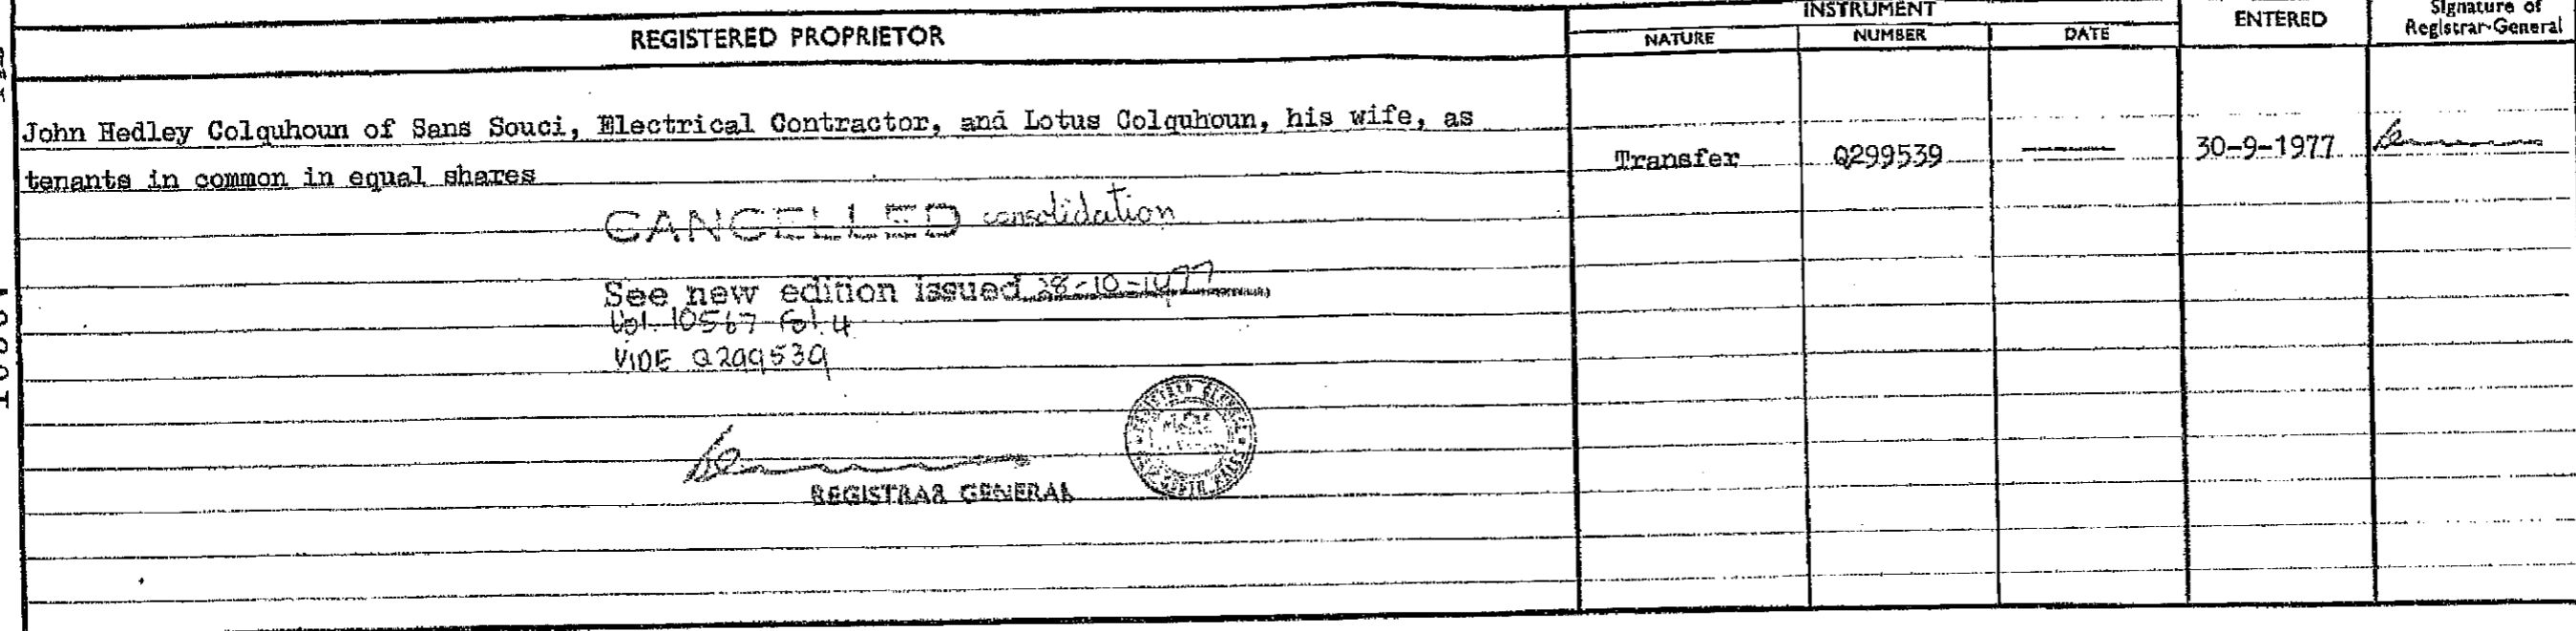 REGISTERED PROPRIETOR
INSTRUMENT
NATURE
NUMBER
DATE
ENTERED
Signature of
Registrar-General
John Hedley Colquhoun of Sans Souci, Electrical Contractor, and Lotus Colquhoun, his wife, as
tenants in common in equal shares
Transfer
Q299539
30-9-1977
CANCELLED consolidation
See new edition issued 28-10-1977
Vol. 10567 Fol. 4
VIDE Q299539
REGISTRAR GENERAL